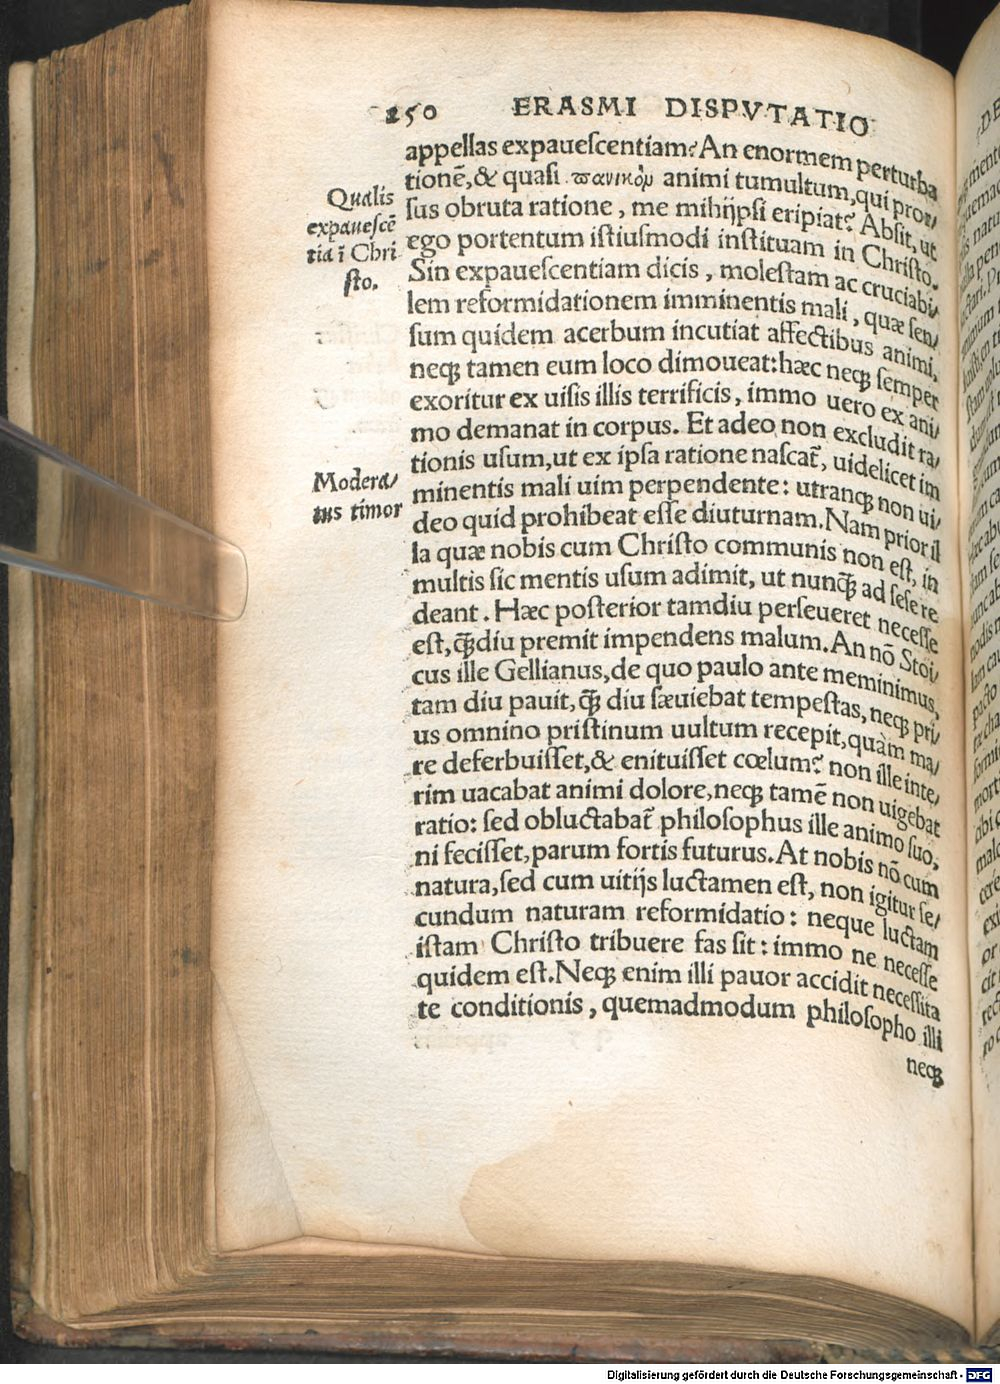 250 ERASMI DISPVTATIO
appellas expaueſcentiam? An enormem perturba
tionẽ, & quaſi πανικὸμ animi tumultum, qui pror/
ſus obruta ratione, me mihijpſi eripiat? Abſit, ut
ego portentum iſtiuſmodi inſtituam in Chriſto.
Sin expaueſcentiam dicis, moleſtam ac cruciabi/
lem reformidationem imminentis mali, quæ ſen/
ſum quidem acerbum incutiat affectibus animi,
neqꝫ tamen eum loco dimoueat: hæc neqꝫ ſemper
exoritur ex uiſis illis terrificis, immo uero ex ani/
mo demanat in corpus. Et adeo non excludit ra/
tionis uſum, ut ex ipſa ratione naſcat᷑, uidelicet im
minentis mali uim perpendente: utranqꝫ non ui/
deo quid prohibeat eſſe diuturnam. Nam prior il
la quæ nobis cum Chriſto communis non eſt, in
multis ſic mentis uſum adimit, ut nunꝗ̃ ad ſeſe re
deant. Hæc poſterior tamdiu perſeueret neceſſe
eſt, ꝗ̃diu premit impendens malum. An nõ Stoi/
cus ille Gellianus, de quo paulo ante meminimus,
tam diu pauit, ꝗ̃ diu ſæuiebat tempeſtas, neqꝫ pri/
us omnino priſtinum uultum recepit, quàm ma/
re deferbuiſſet, & enituiſſet cœlum? non ille inte/
rim uacabat animi dolore, neqꝫ tamẽ non uigebat
ratio: ſed obluctabat᷑ philoſophus ille animo ſuo,
ni feciſſet, parum fortis futurus. At nobis nõ cum
natura, ſed cum uitijs luctamen eſt, non igitur ſe/
cundum naturam reformidatio: neque luctam
iſtam Chriſto tribuere fas ſit: immo ne neceſſe
quidem eſt. Neqꝫ enim illi pauor accidit neceſſita
te conditionis, quemadmodum philoſopho illi
neqꝫ
Qualis
expaueſcẽ
tia ĩ Chri
ſto.
Modera/
tus timor
Digitalisierung gefördert durch die Deutsche Forschungsgemeinschaft - DFG